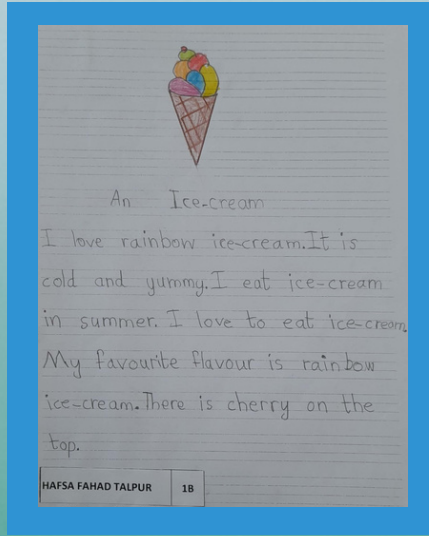 An Ice-cream
I love rainbow ice-cream. It is
cold and yummy. I eat ice-cream
in summer. I love to eat ice-cream.
My favourite flavour is rainbow
ice-cream. There is cherry on the
top.
HAFSA FAHAD TALPUR 1B